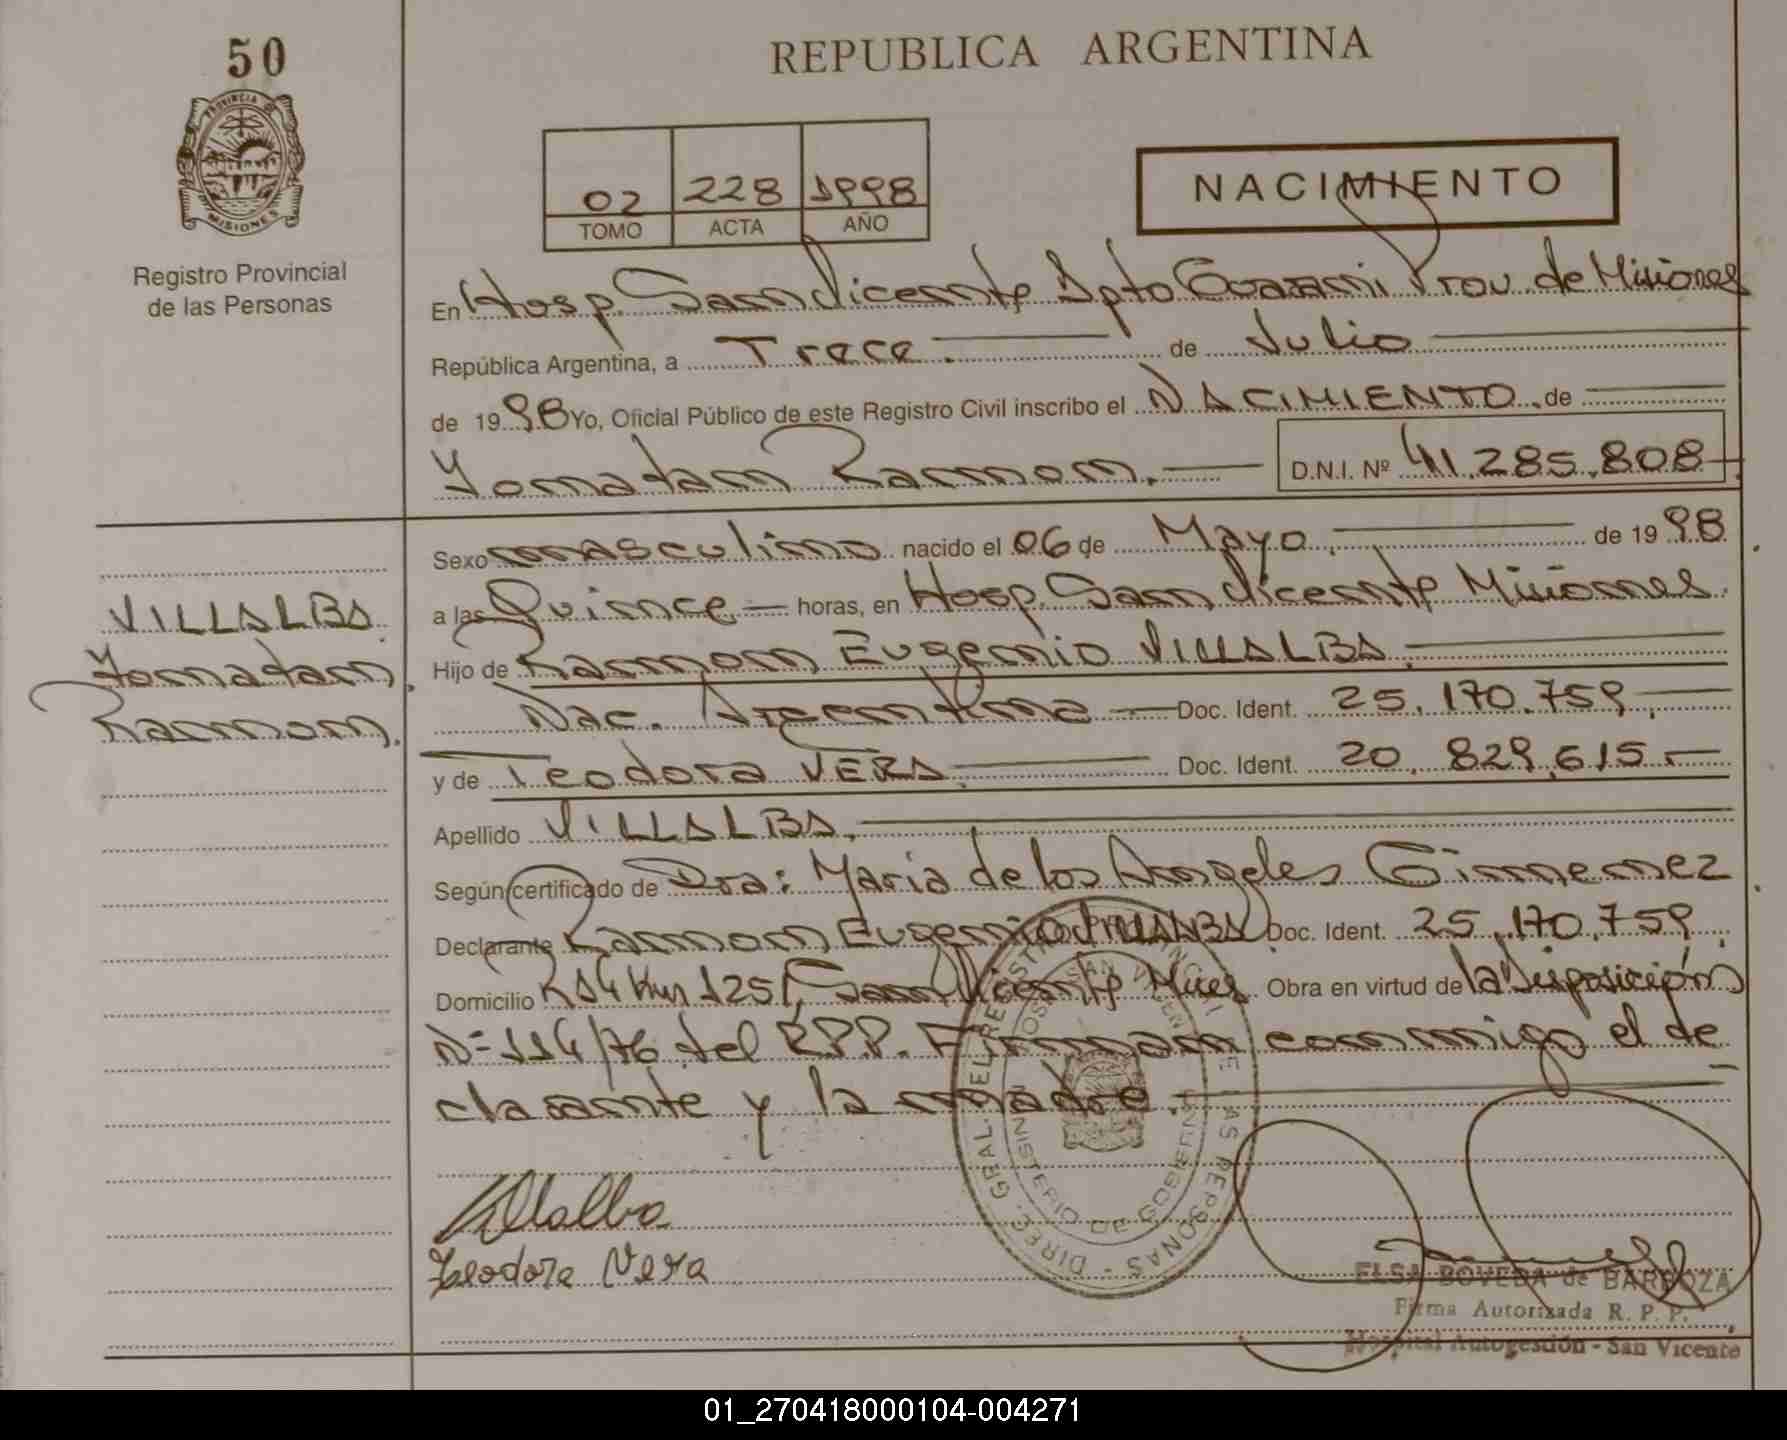 50
REPUBLICA ARGENTINA
PROVINCIA DE
MISIONES
Registro Provincial
de las Personas
02 228 1998
TOMO ACTA AÑO
NACIMIENTO
En Hosp. San Vicente Dpto Guarani Prov. de Misiones
República Argentina, a Trece. de Julio
de 1998 Yo, Oficial Público de este Registro Civil inscribo el NACIMIENTO. de
Yonatan Ramon. D.N.I. Nº 41.285.808
Sexo masculino nacido el 06 de Mayo. de 1998
a las Quince horas, en Hosp. San Vicente Misiones.
Hijo de Ramon Eugenio VILLALBA.
Nac. Argentina Doc. Ident. 25.170.759.
y de Teodora VERA. Doc. Ident. 20.829.615.
Apellido VILLALBA.
Según certificado de Dra: Maria de los Angeles Gimenez
Declarante Ramon Eugenio VILLALBA Doc. Ident. 25.170.759.
Domicilio R14 Km 1251, San Vicente Mnes. Obra en virtud de la Disposición
Nº 114/76 del R.P.P. Firman conmigo el de
clarante y la madre.
VILLALBA
Yonatan
Ramon.
DIREC. GRAL. DEL REGISTRO PROVINCIAL DE LAS PERSONAS
MINISTERIO DE GOBIERNO
HOSP. SAN VICENTE
Villalba
Teodora Vera
ELSA BOVEDA de BARBOZA
Firma Autorizada R. P. P.
Hospital Autogestión - San Vicente
01_270418000104-004271